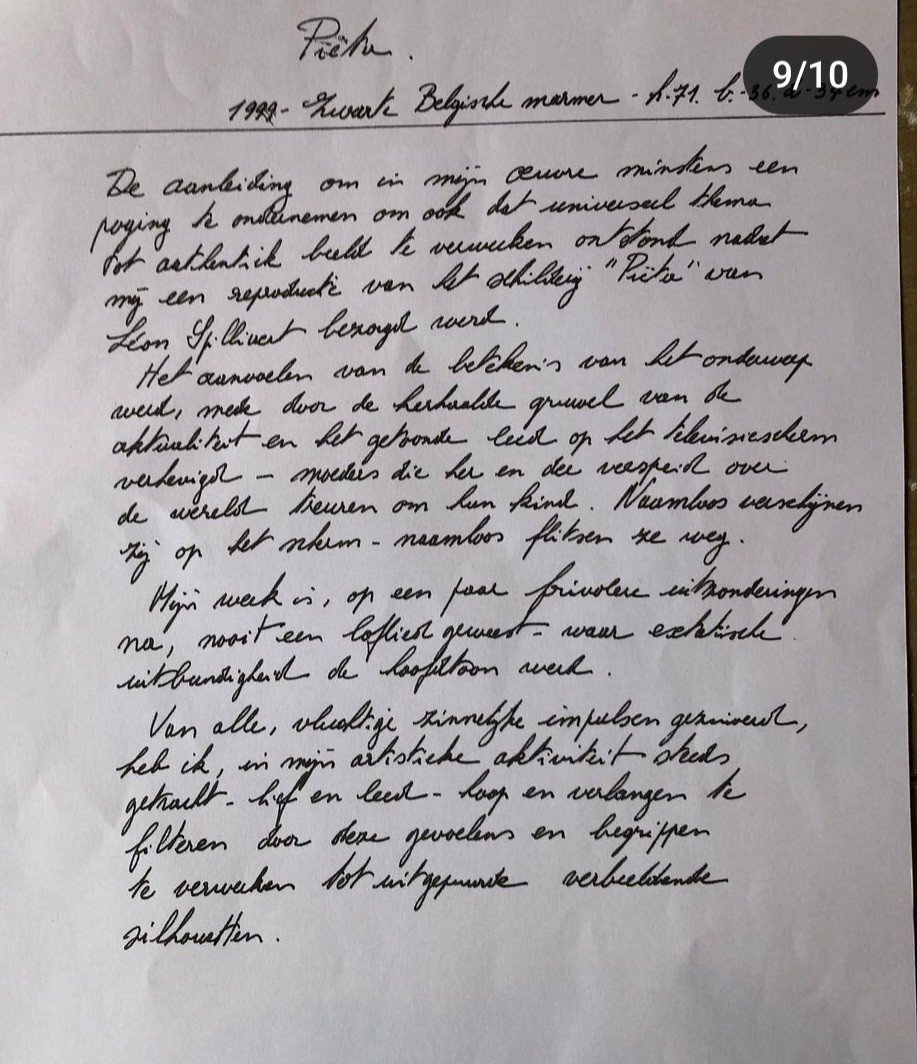 Piëta.
9/10
1999 - Zwarte Belgische marmer - h. 71. b. - 36. d - 34 cm
De aanleiding om in mijn œuvre minstens een
poging te ondernemen om ook dat universeel thema
tot autentiek beeld te verwerken ontstond nadat
mij een reproductie van het schilderij "Piëta" van
Léon Spilliaert bezorgd werd.
Het aanvoelen van de betekenis van het onderwerp
werd, mede door de herhaalde gruwel van de
aktualiteit en het getoonde leed op het televisiescherm
verhevigd - moeders die her en der verspreid over
de wereld treuren om hun kind. Naamloos verschijnen
zij op het scherm - naamloos flitsen ze weg.
Mijn werk is, op een paar frivolere uitzonderingen
na, nooit een loflied geweest - waar extatische
uitbundigheid de hoofdtoon werd.
Van alle, vluchtige zinnelijke impulsen gezuiverd,
heb ik, in mijn artistieke aktiviteit steeds
getracht - lief en leed - hoop en verlangen te
filteren door deze gevoelens en begrippen
te verwerken tot uitgepuurde verbeeldende
silhouetten.